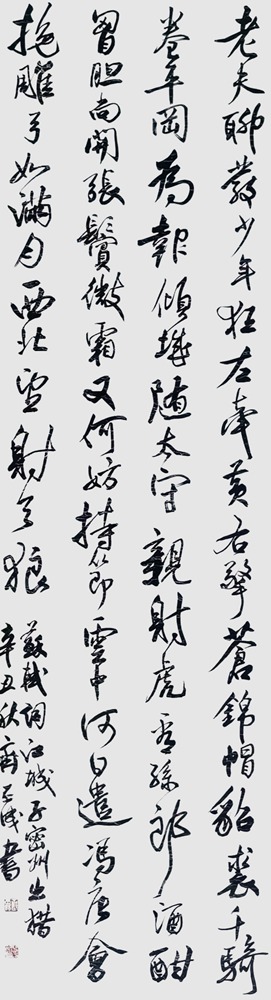 老夫聊發少年狂左牽黃右擎蒼錦帽貂裘千騎
卷平岡為報傾城随太守親射虎看孫郎酒酣
胸膽尚開張鬢微霜又何妨持節雲中何日遣馮唐會
挽雕弓如滿月西北望射天狼
蘇軾詞江城子密州出獵
辛丑秋齊書